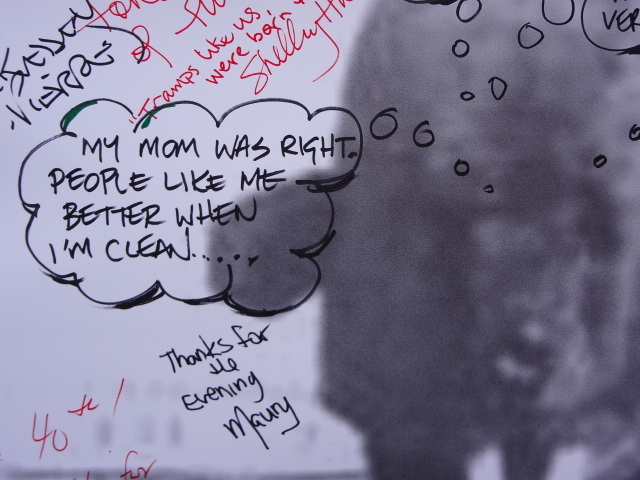 of
"Tramps like us,
were born
VER
MY MOM WAS RIGHT.
PEOPLE LIKE ME
BETTER WHEN
I'M CLEAN.....
Thanks for
the
Evening
Maury
40th!
for